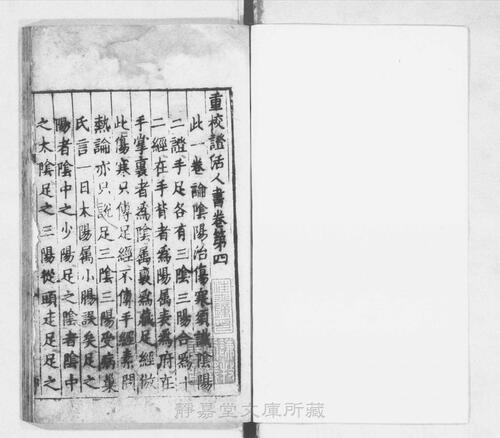 重校證活人書卷第四
此一卷論陰陽治傷寒須識陰陽
二證手足各有三陰三陽合爲十
二經在手背者爲陽属表爲府在
手掌裏者爲陰属裏爲藏足經倣
此傷寒只傳足經不傳手經素問
熱論亦只說足三陰三陽受病巢
氏言一日太陽属小腸誤矣足之
陽者陰中之少陽足之陰者陰中
之太陰足之三陽從頭走足足之
靜嘉堂文庫所藏